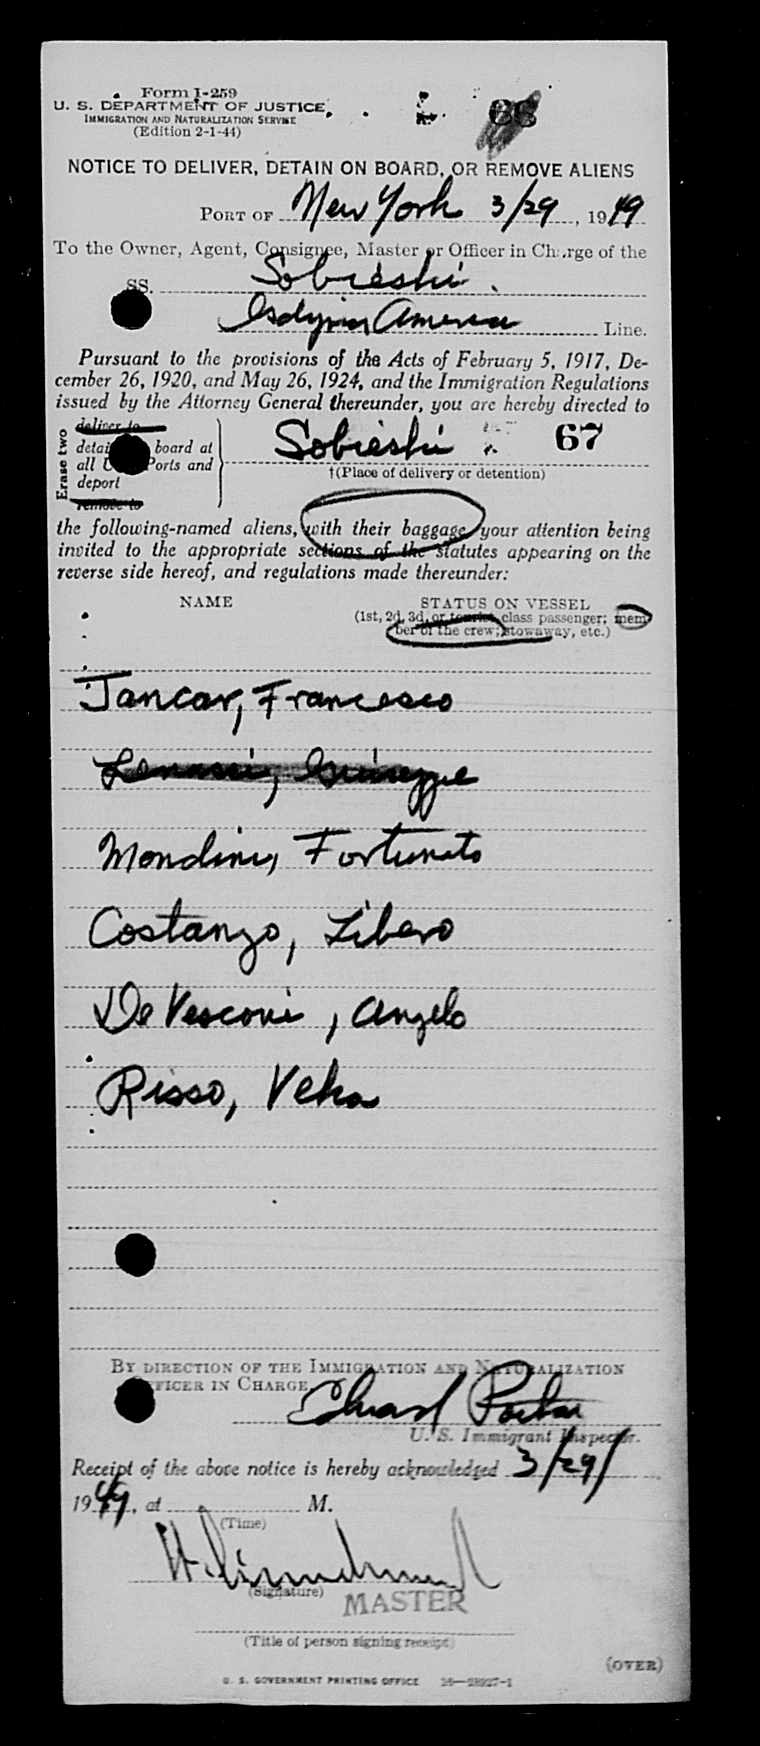 Form I-259
U. S. DEPARTMENT OF JUSTICE
IMMIGRATION AND NATURALIZATION SERVICE
(Edition 2-1-44)
66
NOTICE TO DELIVER, DETAIN ON BOARD, OR REMOVE ALIENS
PORT OF New York 3/29, 1949
To the Owner, Agent, Consignee, Master or Officer in Charge of the
SS. Sobieski.
Gdynia America Line.
Pursuant to the provisions of the Acts of February 5, 1917, De-
cember 26, 1920, and May 26, 1924, and the Immigration Regulations
issued by the Attorney General thereunder, you are hereby directed to
Erase two
deliver to
detain board at
all U Ports and
deport
remove to
Sobieski 67
†(Place of delivery or detention)
the following-named aliens, with their baggage, your attention being
invited to the appropriate sections of the statutes appearing on the
reverse side hereof, and regulations made thereunder:
NAME STATUS ON VESSEL
(1st, 2d, 3d, or tourist class passenger; mem-
ber of the crew; stowaway, etc.)
Jancar, Francesco
Lenassi, Giuseppe
Mondini, Fortunato
Costanzo, Libero
De Vesconi, Angelo
Risso,
BY DIRECTION OF THE IMMIGRATION AND NATURALIZATION
OFFICER IN CHARGE
U. S. Immigrant Inspector.
Receipt of the above notice is hereby acknowledged 3/29/
1949, at M.
(Time)
(Signature)
MASTER
(Title of person signing receipt)
(OVER)
U. S. GOVERNMENT PRINTING OFFICE 16—28927-1